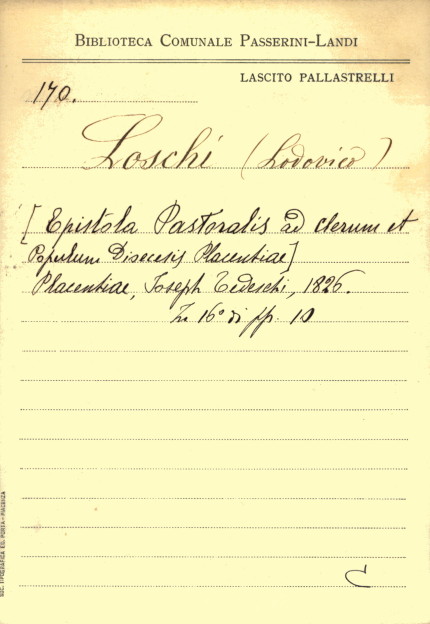 BIBLIOTECA COMUNALE PASSERINI-LANDI
LASCITO PALLASTRELLI
170.
Loschi (Lodovico)
[Epistola Pastoralis ad clerum et
Populum Diocesis Placentiae]
Placentiae, Joseph Tedeschi, 1826.
In 16° di pp. 10
C
SOC. TIPOGRAFICA ED. PORTA-PIACENZA